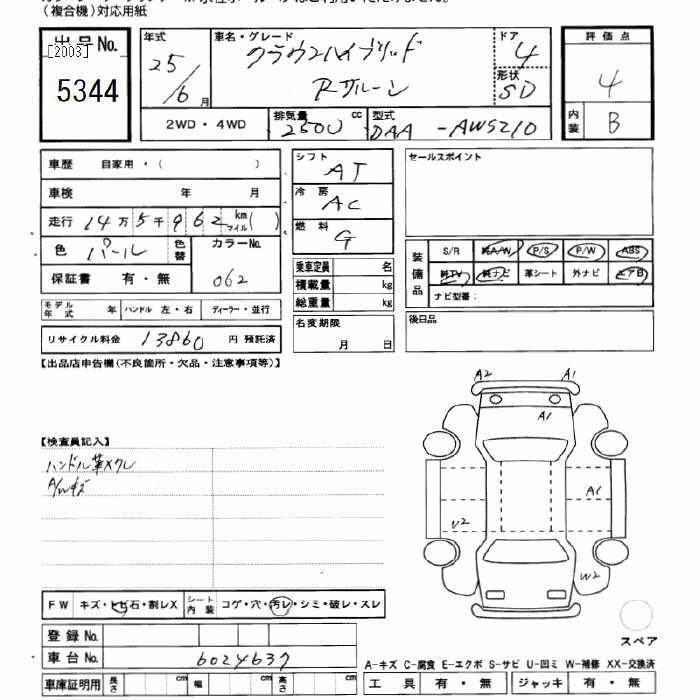 (複合機)対応用紙
出品No.
[2003]
5344
年式
25/6月
車名・グレード
クラウンハイブリッド
Rサルーン
ドア
4
形状
SD
2WD・4WD
排気量
2500 cc
型式
DAA-AWS210
評価点
4
内装
B
車歴 自家用・( )
車検 年 月
走行 14万5千962 km マイル( )
色 パール
色替
カラーNo.
062
保証書 有・無
モデル年式 年 ハンドル 左・右 ディーラー・並行
リサイクル料金 13860 円 預託済
シフト
AT
冷房
AC
燃料
G
乗車定員 名
積載量 kg
総重量 kg
名変期限
月 日
セールスポイント
装備品
S/R 純A/W P/S P/W ABS
純TV 純ナビ 革シート 外ナビ エアB
ナビ型番:
後日品
【出品店申告欄(不良箇所・欠品・注意事項等)】
【検査員記入】
ハンドル革メクレ
A/Wキズ
A2
A1
A1
A1
U2
W2
スペア
FW キズ・トビ石・割レX
シート内装 コゲ・穴・汚レ・シミ・破レ・スレ
登録No.
車台No. 6024637
A-キズ C-腐食 E-エクボ S-サビ U-凹ミ W-補修 XX-交換済
車庫証明用 長さ cm 幅 cm 高さ cm
工具 有・無 ジャッキ 有・無